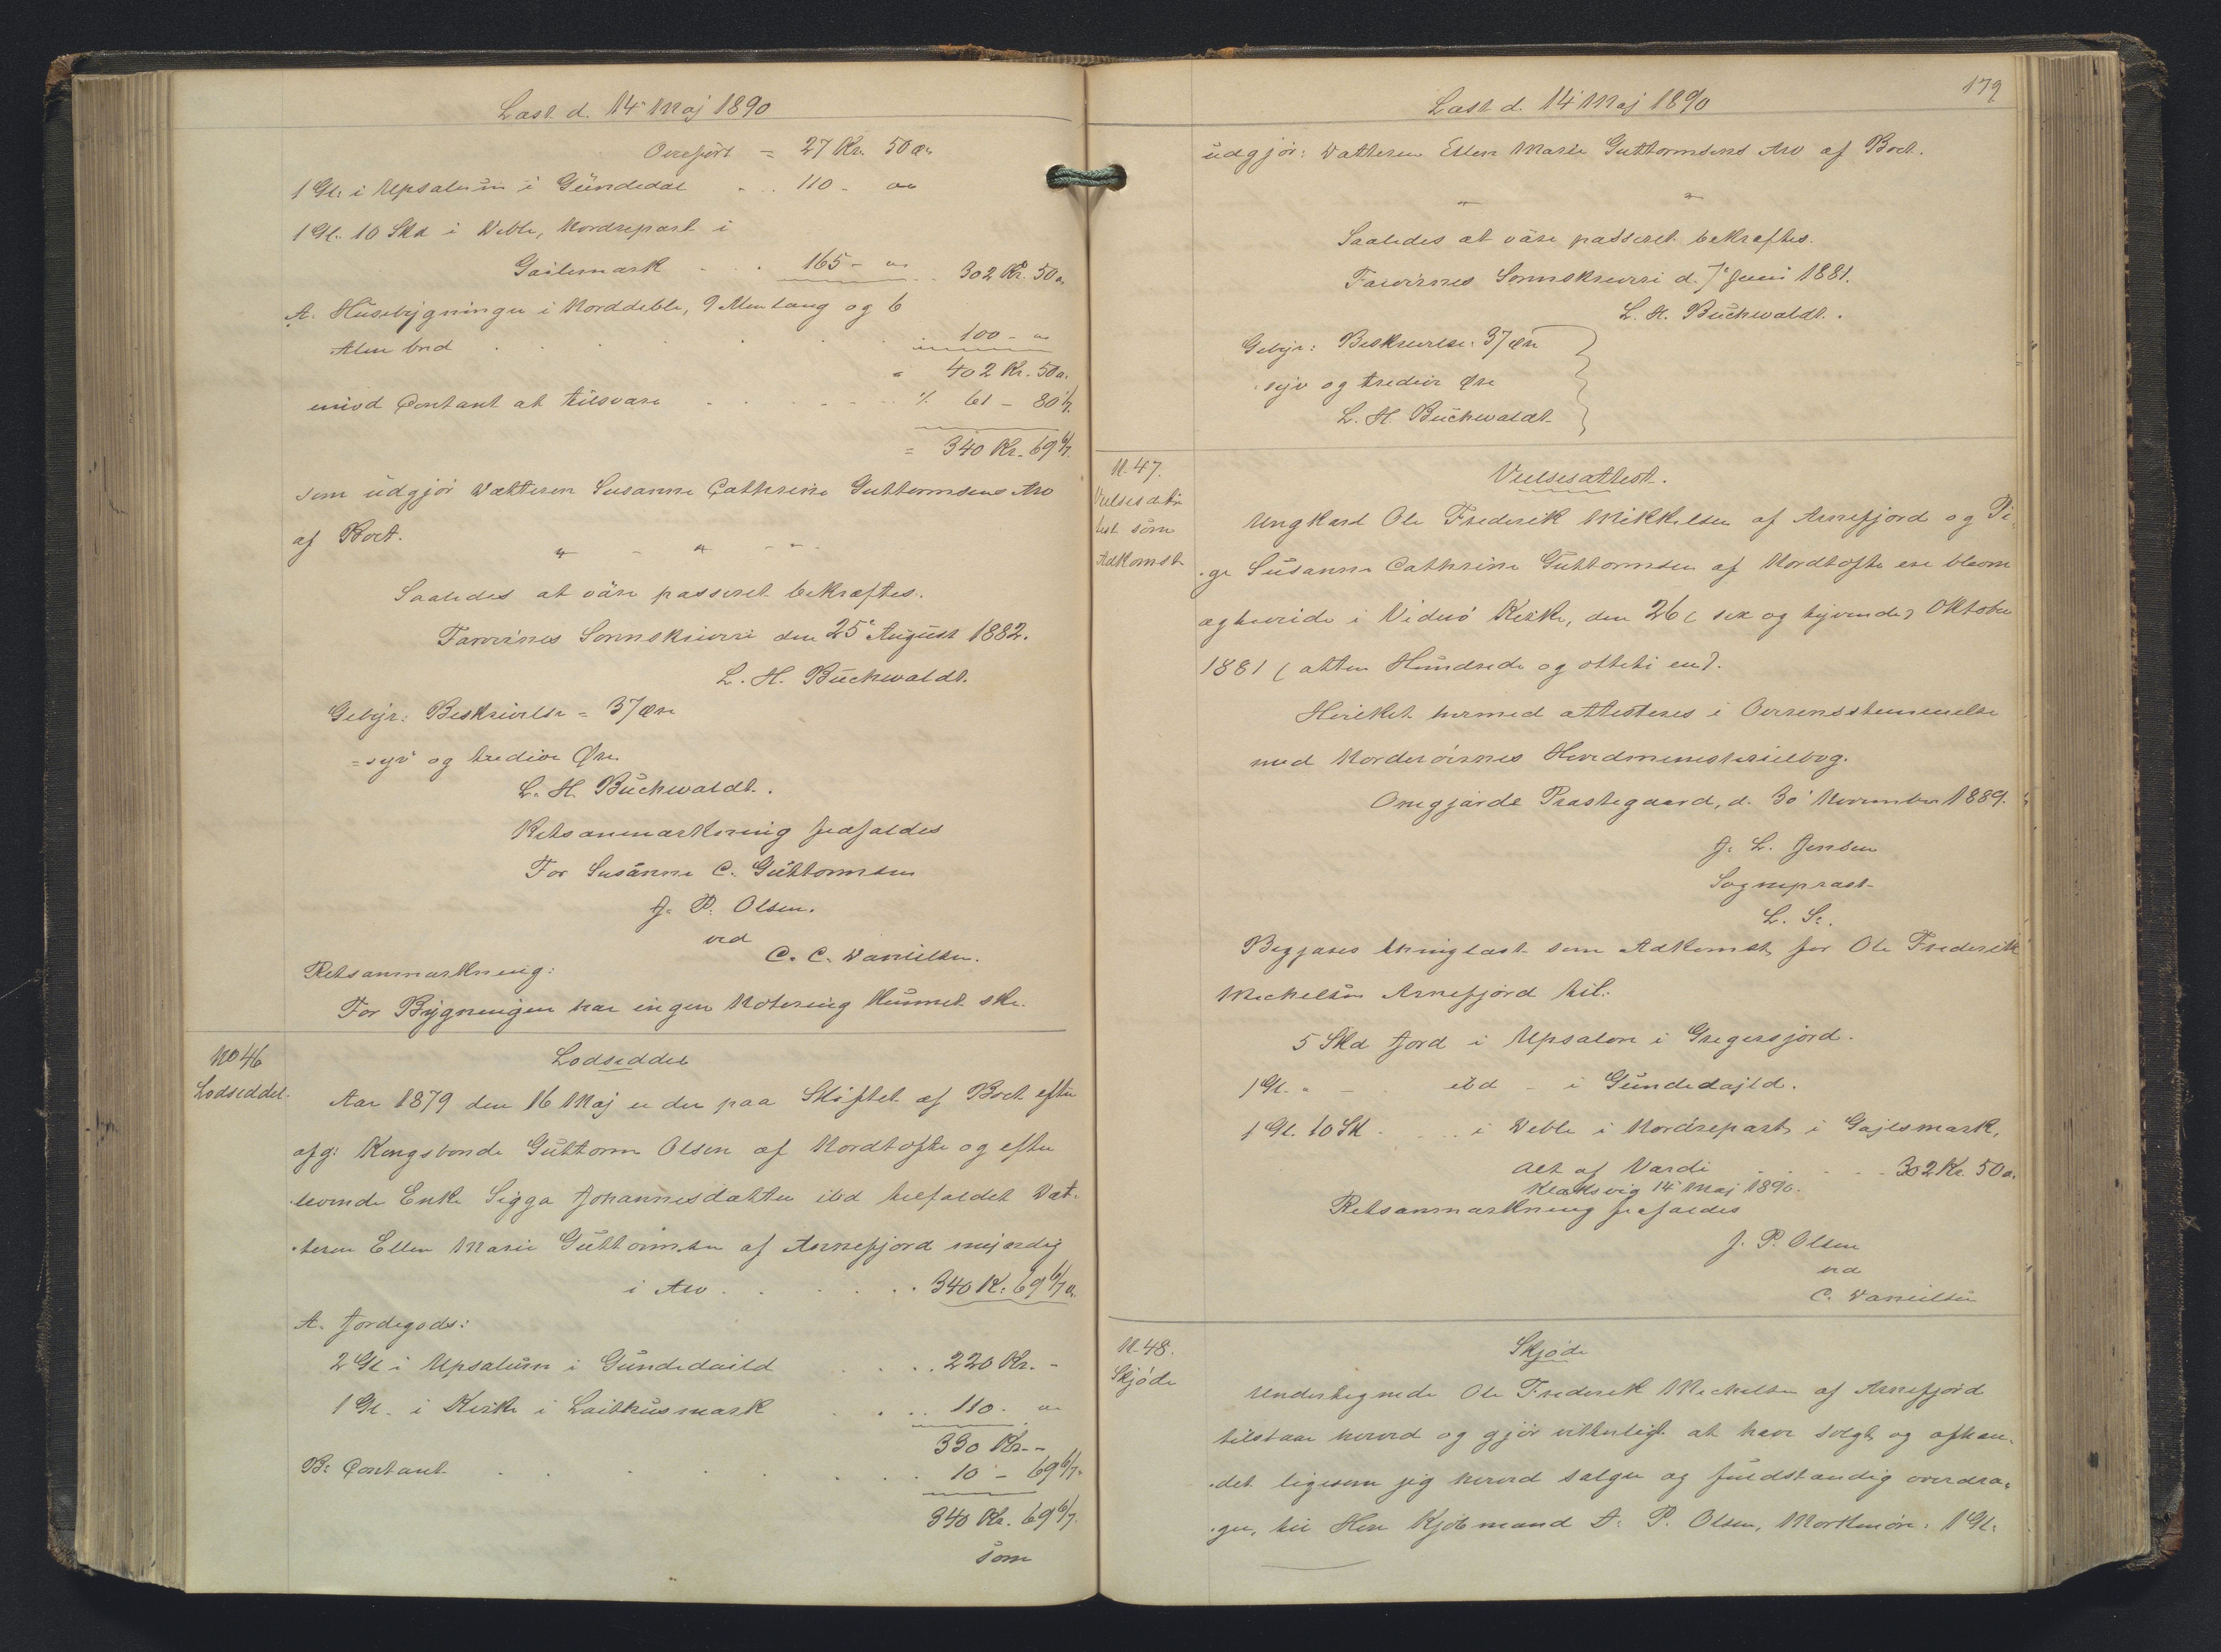 Læst d. 14 Maj 1890
Overført = 27 Kr. 50 ø.
1 Gl. i Upsalum i Gündedal . . . 110 - "
1 Gl. 10 Skd i Deble, Nordrepart i
Gailsmark . . . 165 - " . . 302 Kr. 50 ø.
A. Husebygningen i Norddeble, 9 Alen lang og 6
Alen bred . . . . . . 100 - "
= 402 Kr. 50 ø.
imod Contant at tilsvare . . . . . . ٪ 61 - 80 1/7.
= 340 Kr. 69 6/7.
som udgjør Datteren Susanne Cathrine Guttormsens Arv
af Boet.
" - " - "
Saaledes at være passeret bekræftes.
Færøernes Sorenskriveri den 25 August 1882.
L. H. Buchwaldt.
Gebyr: Beskrivelse = 37 Øre
= syv og tredive Øre
L. H. Buchwaldt.
Retsanmærkning frafaldes
For Susanne C. Guttormsen
J. P. Olsen.
ved
C. C. Danielsen.
Retsanmærkning:
For Bygningen har ingen Notering kunnet ske.
No 46
Lodseddel.
Lodseddel
Aar 1879 den 16 Maj er der paa Skiftet af Boet efter
afg: Kongsbonde Guttorm Olsen af Nordtofte og efter
levende Enke Sigga Johannesdatter ibd tilfaldet Dat-
teren Ellen Marie Guttormsen af Arnefjord myndig
i Arv . . . . . . 340 K: 69 6/7 ø.
A. Jordegods:
2 Gl i Upsalum i Gündedaild . . . . 220 Kr. -
1 Gl. i Kirke i Laithusmark . . . . 110 - "
330 Kr. -
B: Contant . . . . . . . 10 - 69 6/7.
340 Kr. 69 6/7.
som
179
Læst d. 14 Maj 1890
udgjør: Datteren Ellen Marie Guttormsens Arv af Boet.
" "
Saaledes at være passeret bekræftes.
Færøernes Sorenskriveri d. 7 Juni 1881.
L. H. Buchwaldt.
Gebyr: Beskrivelse. 37 Øre
syv og tredive Øre
L. H. Buchwaldt
N. 47.
Vielsesatte-
test som
Adkomst
Vielsesattest.
Ungkarl Ole Frederik Mikkelsen af Arnefjord og Pi-
ge Susanne Cathrine Guttormsen af Nordtofte ere blevne
ægteviede i Viderø Kirke, den 26 ( sex og tyvende) Oktober
1881 ( atten Hundrede og otteti en).
Hvilket hermed attesteres i Overensstemmelse
med Norderøernes Hovedministerialbog.
Onegjærde Præstegaard, d. 30 November 1889.
J. L. Jensen
Sognepræst
L. S.
Begjæres thinglæst som Adkomst for Ole Frederik
Mickelsen Arnefjord til:
5 Skd Jord i Upsalon i Gregersjord.
1 Gl. " - ibd - i Gündedajld.
1 Gl. 10 Sk . . . . i Deble i Nordrepart i Gajlsmark,
Alt af Værdi . . . . 302 Kr. 50 ø.
Klaksvig 14 Maj 1890.
Retsanmærkning frafaldes
J. P. Olsen
ved
C. Danielsen
N. 48.
Skjøde
Skjøde
Undertegnede Ole Frederik Mickelsen af Arnefjord
tilstaar herved og gjør vitterligt at have solgt og afhæn-
det ligesom jeg herved sælger og fuldstændig overdra-
ger, til Herr Kjøbmand J. P. Olsen, Mortensøre: 1 Gl: